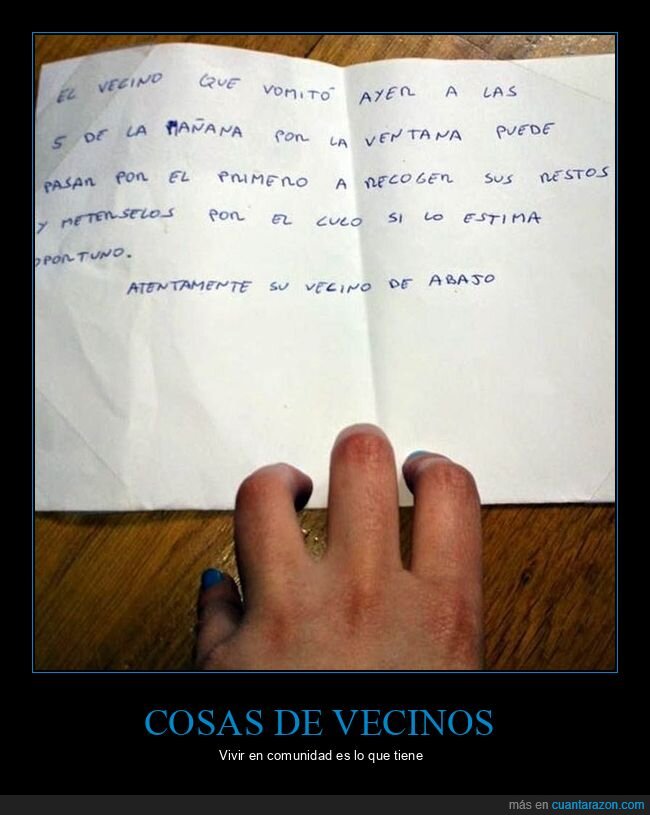 EL VECINO QUE VOMITÓ AYER A LAS
5 DE LA MAÑANA POR LA VENTANA PUEDE
PASAR POR EL PRIMERO A RECOGER SUS RESTOS
Y METERSELOS POR EL CULO SI LO ESTIMA
OPORTUNO.
ATENTAMENTE SU VECINO DE ABAJO
COSAS DE VECINOS
Vivir en comunidad es lo que tiene
más en cuantarazon.com